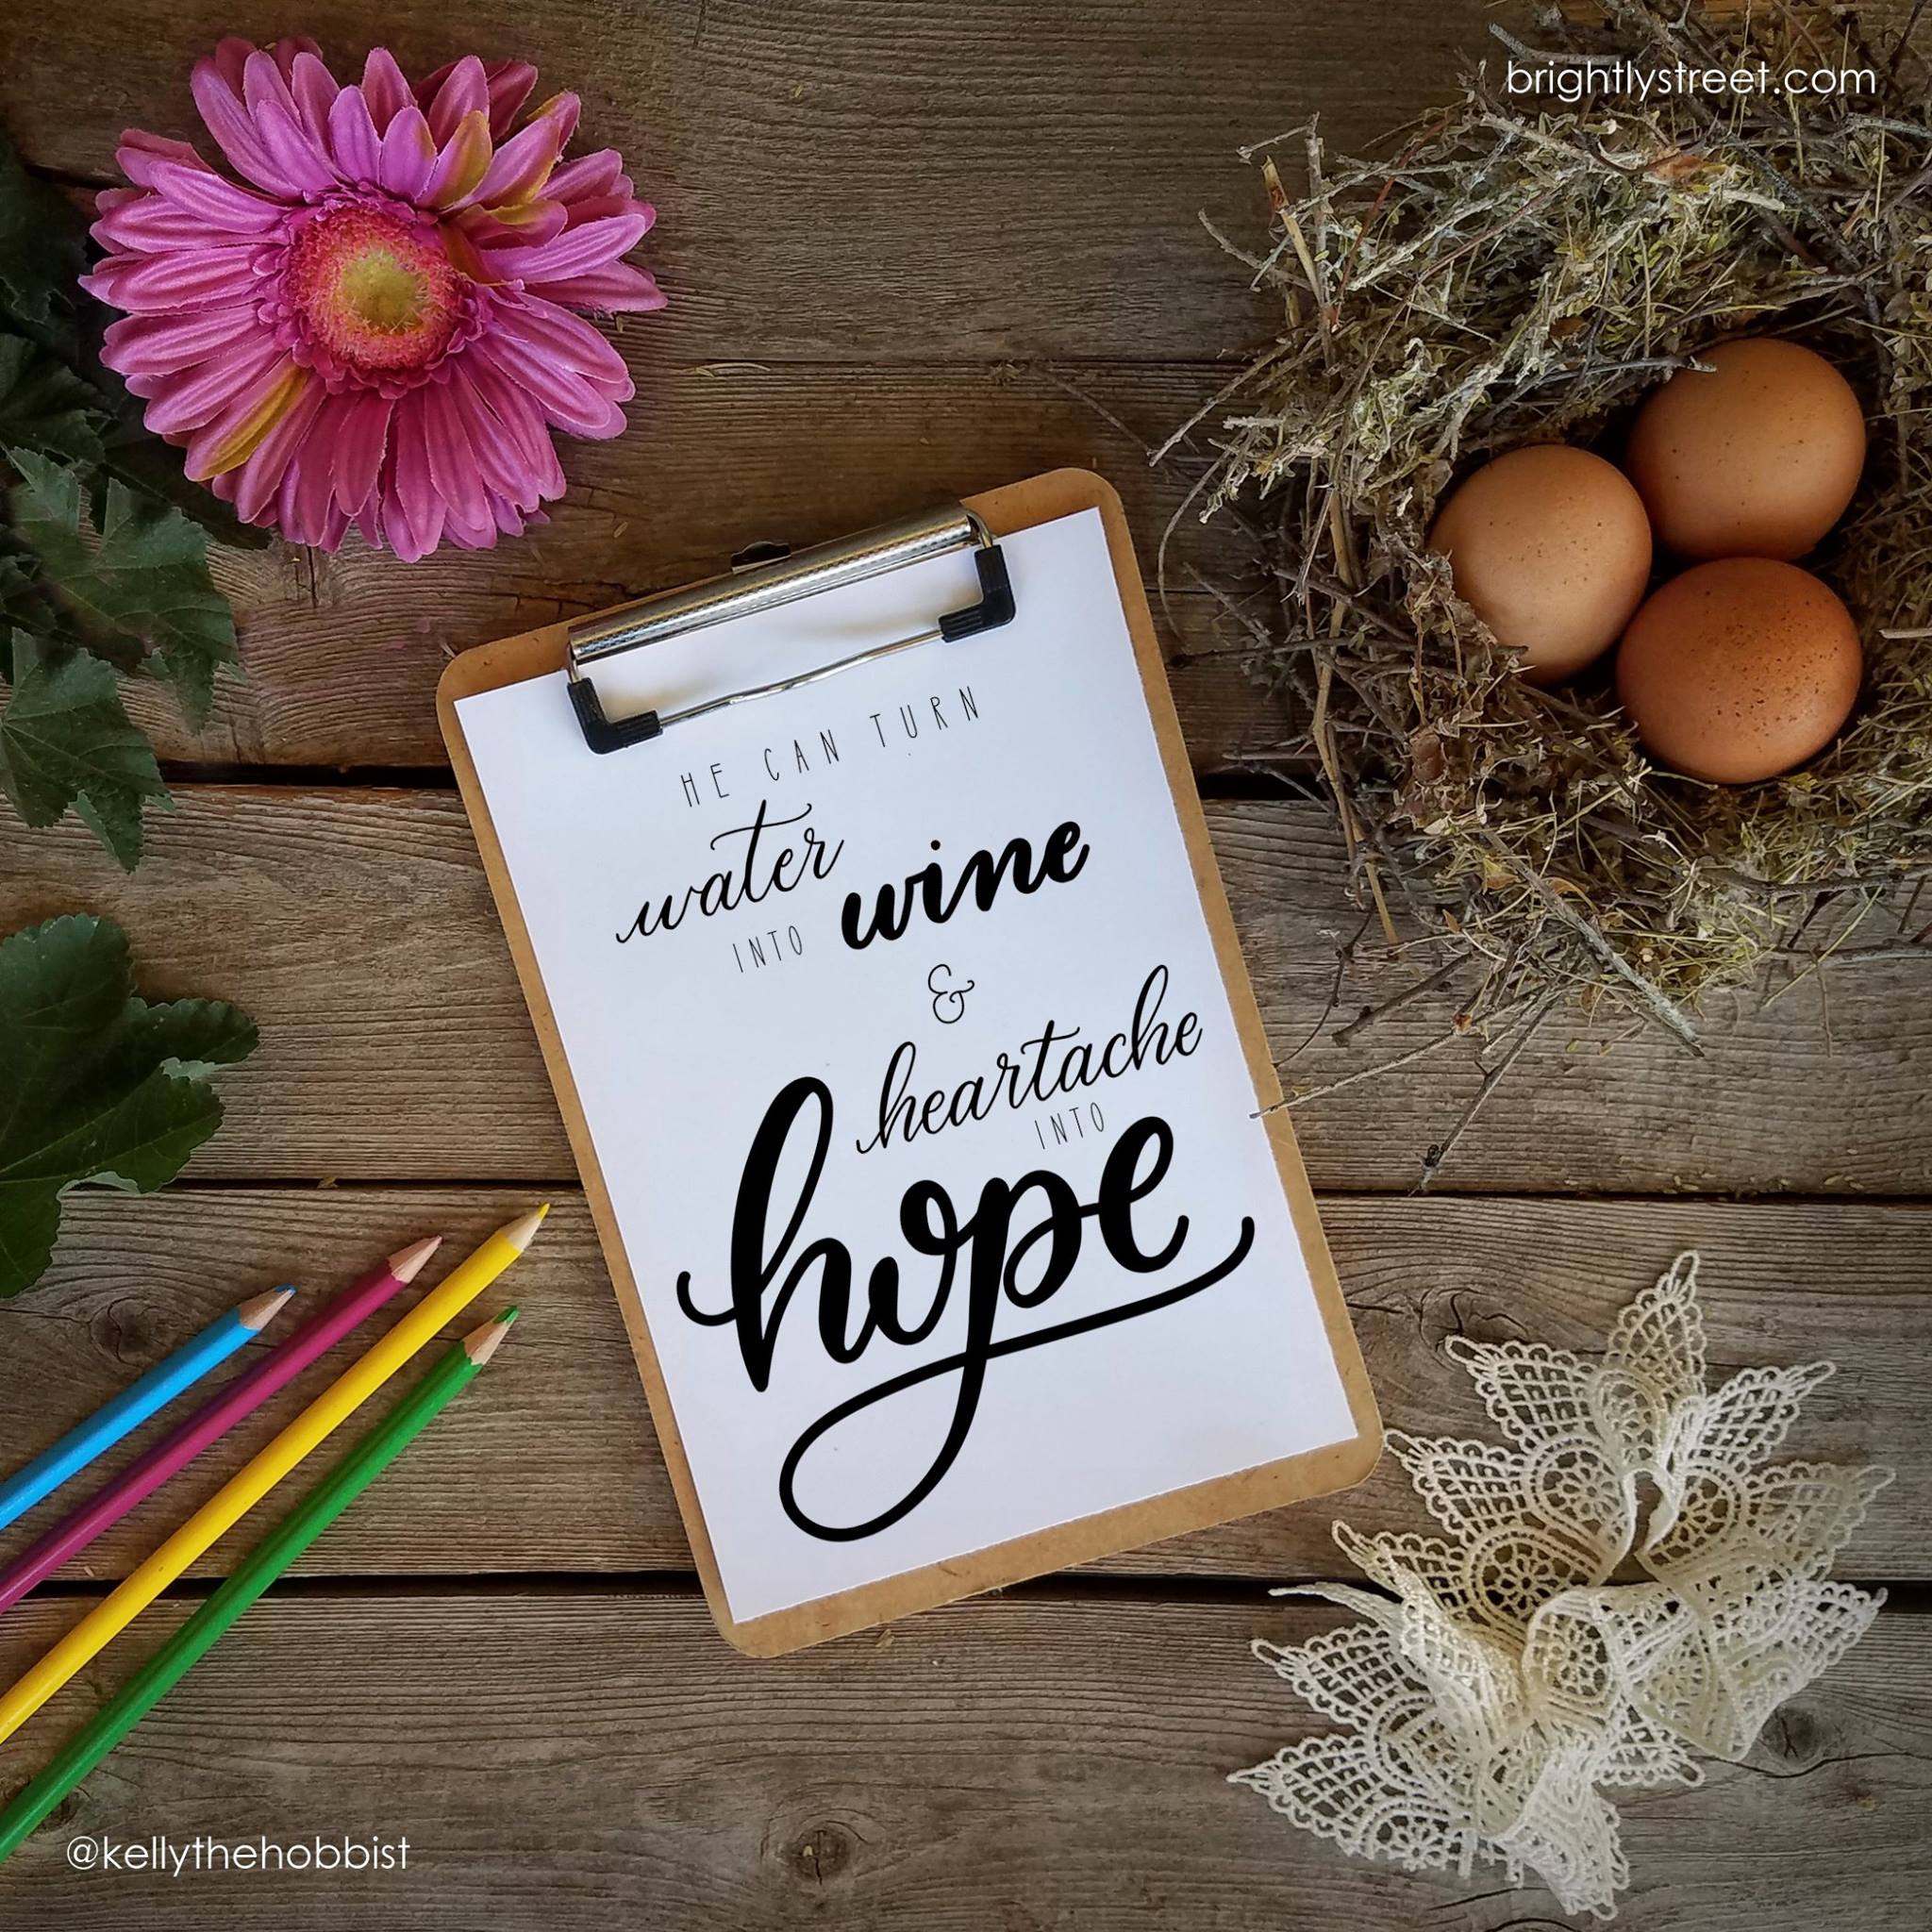 brightlystreet.com
HE CAN TURN
water
INTO wine
&
heartache
INTO
hope
@kellythehobbist